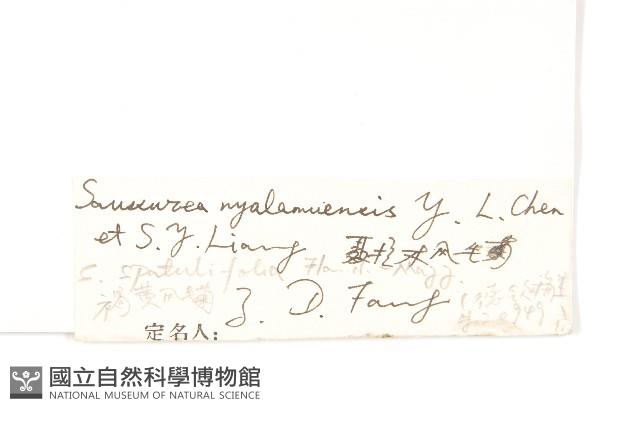 Saussurea nyalamuensis Y. L. Chen
et S. Y. Liang 聂拉木风毛菊
S. spatulifolia Hand.-Mazz.
Z. D. Fang
定名人:
國立自然科學博物館
NATIONAL MUSEUM OF NATURAL SCIENCE